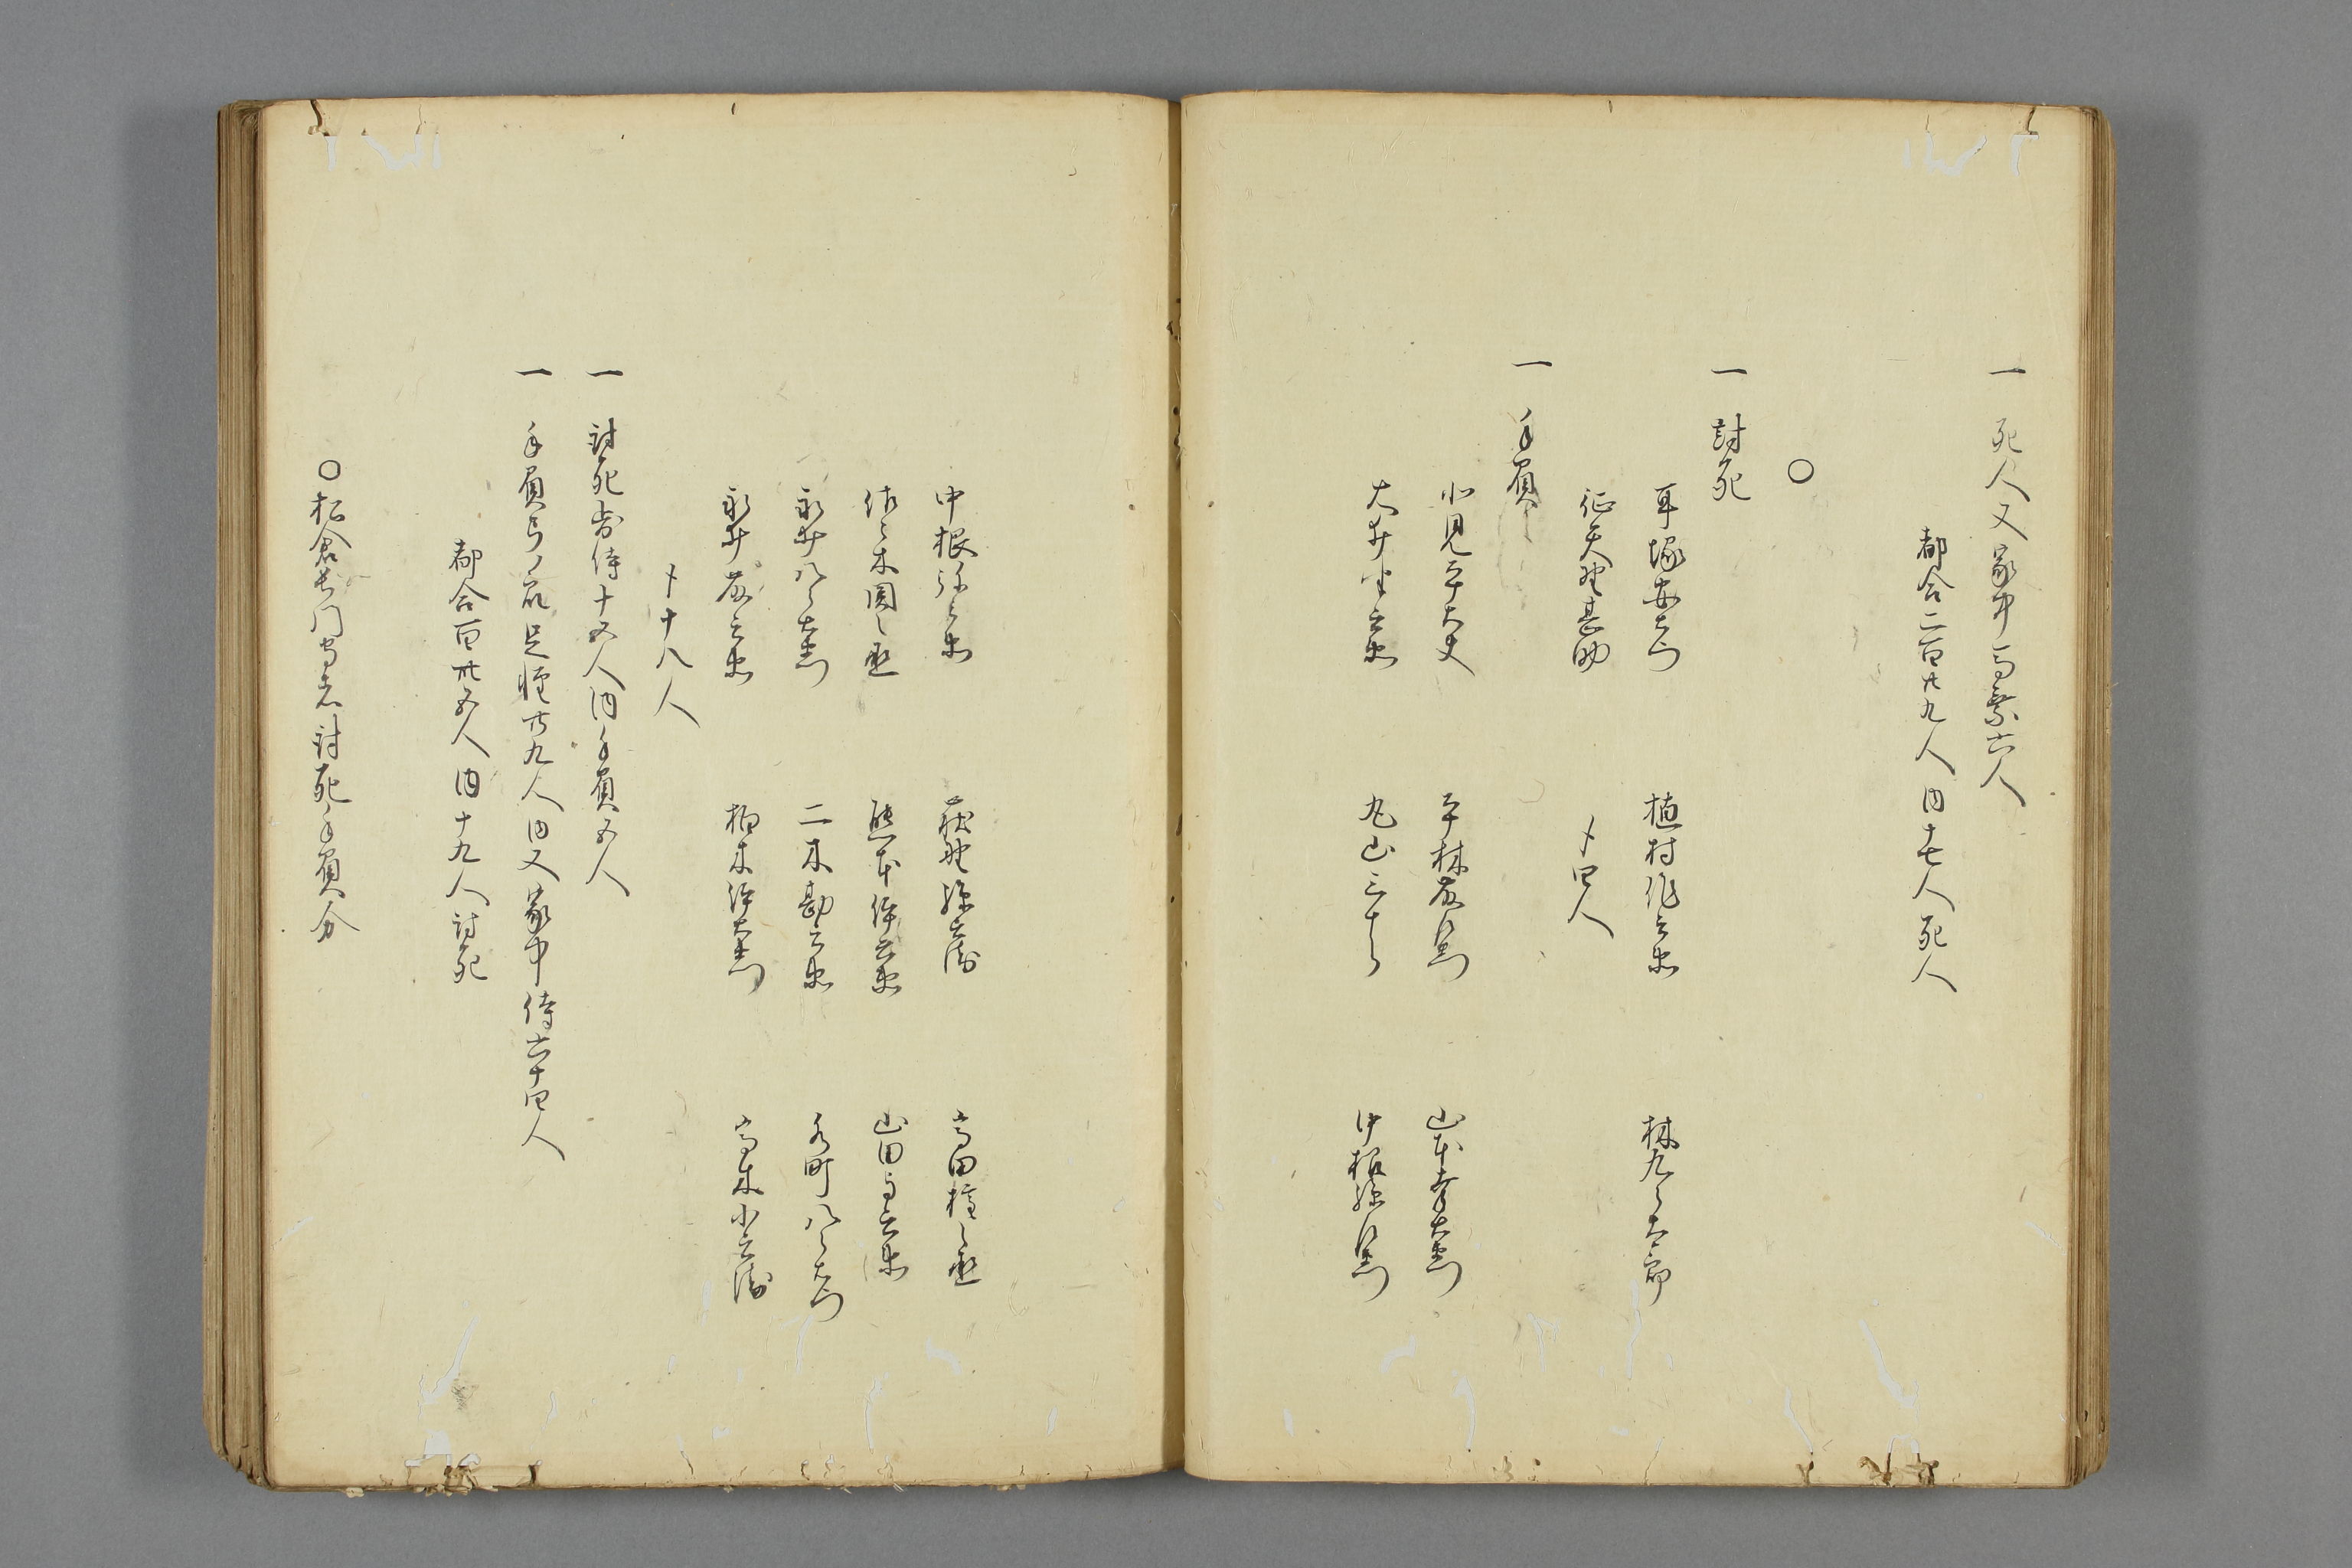 一 死人又家中馬乗六人
都合二百廿九人内十七人死人
〇
一 討死
耳塚安右衛門 植村作兵衛 林九郎太郎
征矢野甚助 〆四人
一 手負
小見平太夫 平林藤右衛門 山本孝左衛門
大井半兵衛 丸山三十郎 中根孫右衛門
中根弥兵衛 荻野孫兵衛 高田権之丞
佐々木図之丞 熊本作兵衛 山田与兵衛
永井八郎左衛門 二木勘兵衛 永町八郎右衛門
永井藤兵衛 柏木作左衛門 高木小兵衛
〆十八人
一 討死 侍十五人内手負五人
一 手負弓ノ衆足軽廿九人内又家中侍六十四人
都合百卅五人内十九人討死
〇松倉長門守者討死手負分